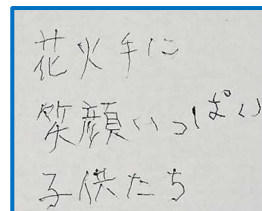 花火手に
笑顔いっぱい
子供たち